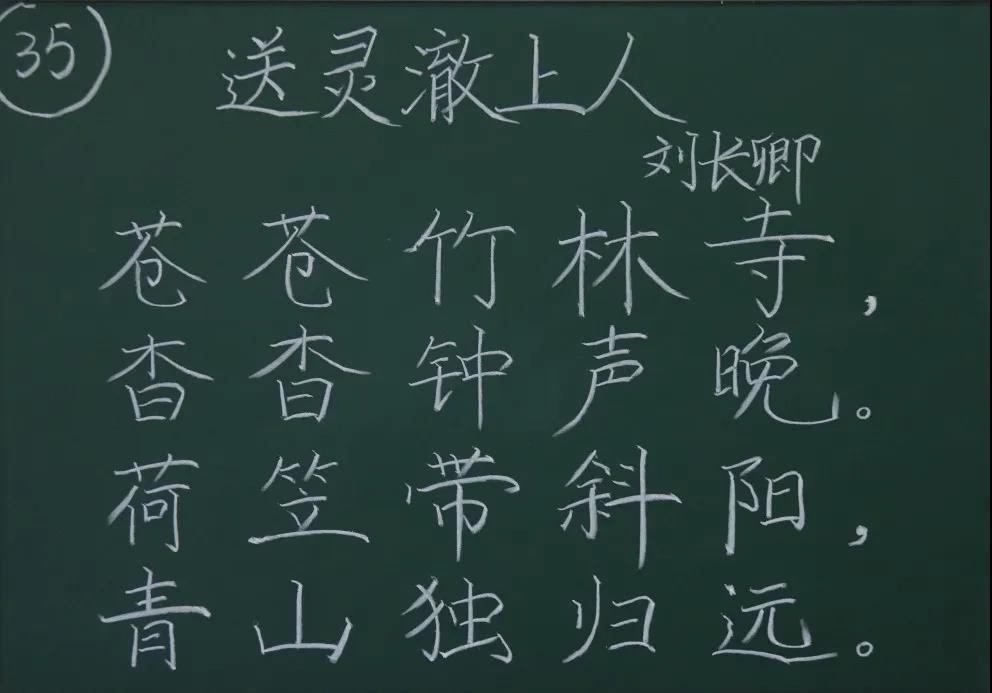 35
送灵澈上人
刘长卿
苍苍竹林寺，
杳杳钟声晚。
荷笠带斜阳，
青山独归远。